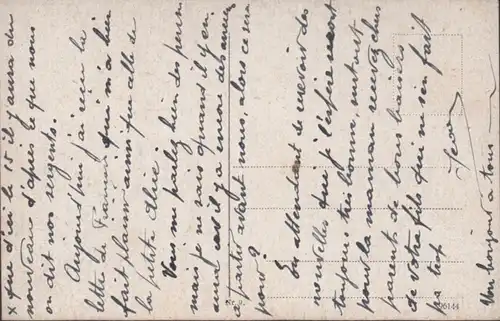 x que d'ici le 15 il y aura du
nouveau d'après ce que nous
on dit nos sergents.
Aujourd'hui j'ai reçu la
lettre de Francis qui m'a bien
fait plaisir ainsi que celle de
la petite Alice
Vous me parlez bien des perm
mais je ne sais quand il y en
aura car il y a encore des
à partir avant nous, alors ce sera
pour ?
En attendant de recevoir des
nouvelles que j'espère sont
toujours très bonnes,
pour la maman recevez chers
parents de bons baisers
de votre fils qui ne s'en fait
pas trop
Mon bonjour à tous
96144